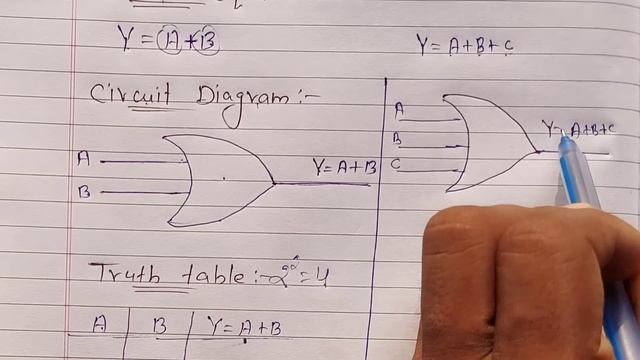 Y = A + B
Y = A + B + C
Circuit Diagram :-
A
B
Y = A + B
A
B
C
Y = A + B + C
Truth table :- 2² = 4
A B Y = A + B